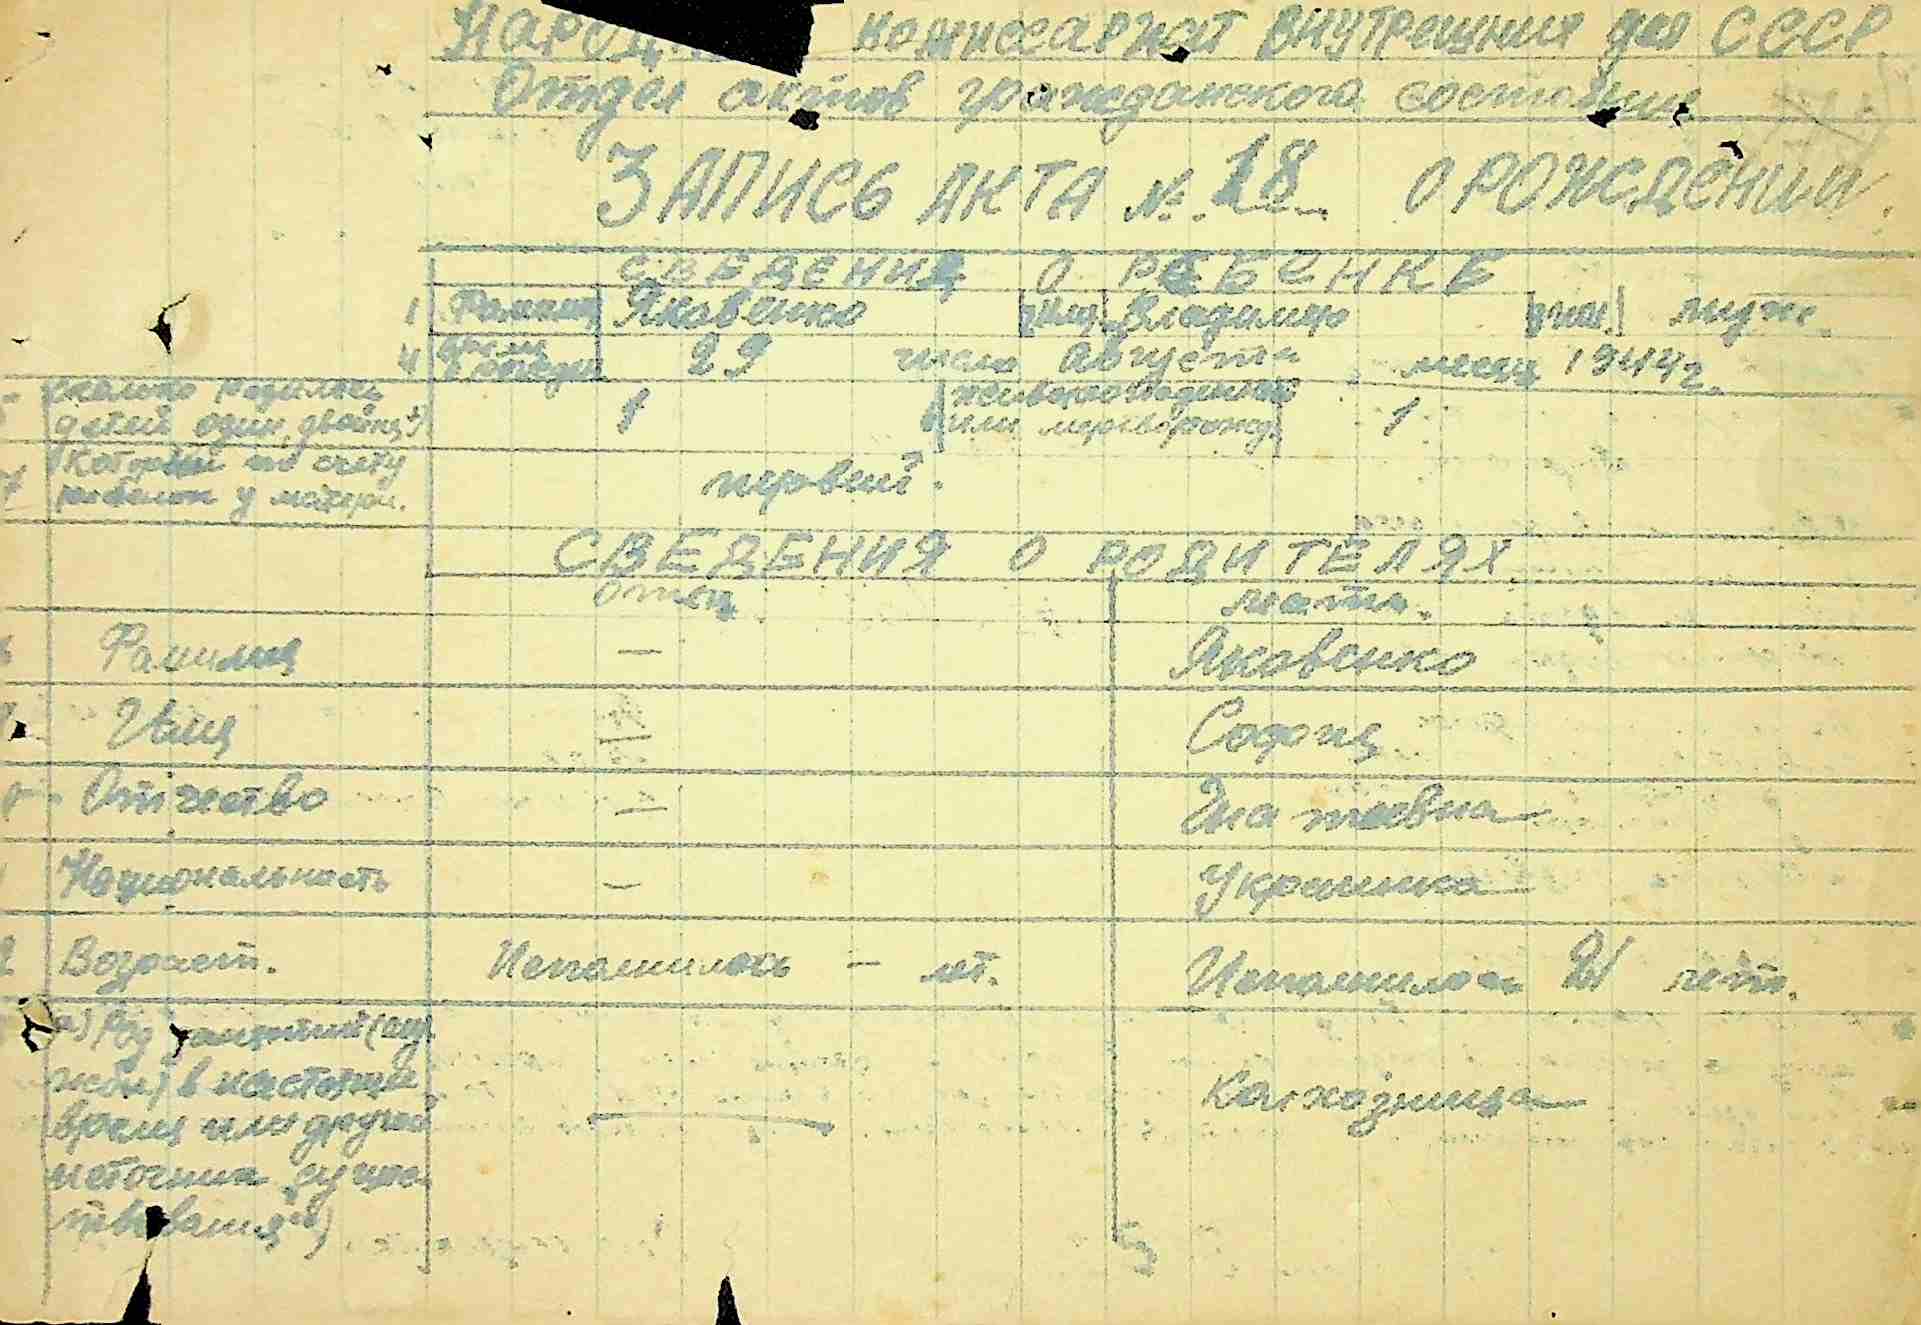 Народный комиссариат внутренних дел СССР
Отдел актов гражданского состояния
ЗАПИСЬ АКТА №. 18 О РОЖДЕНИИ.
СВЕДЕНИЯ О РЕБЕНКЕ
1 Фамилия Яковенко имя Владимир пол муж.
4 время рожден 29 число Августа месяц 1944 г.
сколько родилось
детей один, двойня 1 живорожденный
или мертворожд. 1
7 Который по счету
ребенок у матери. первый.
СВЕДЕНИЯ О РОДИТЕЛЯХ
Отец мать.
Фамилия — Яковенко
Имя — София
Отчество — Матвевна
Национальность — Украинка
Возраст. Исполнилось — лет. Исполнилось 21 лет.
а) Род занятий (слу
жбы) в настоящее
время или другой
источник сущес
твования) — Колхозница